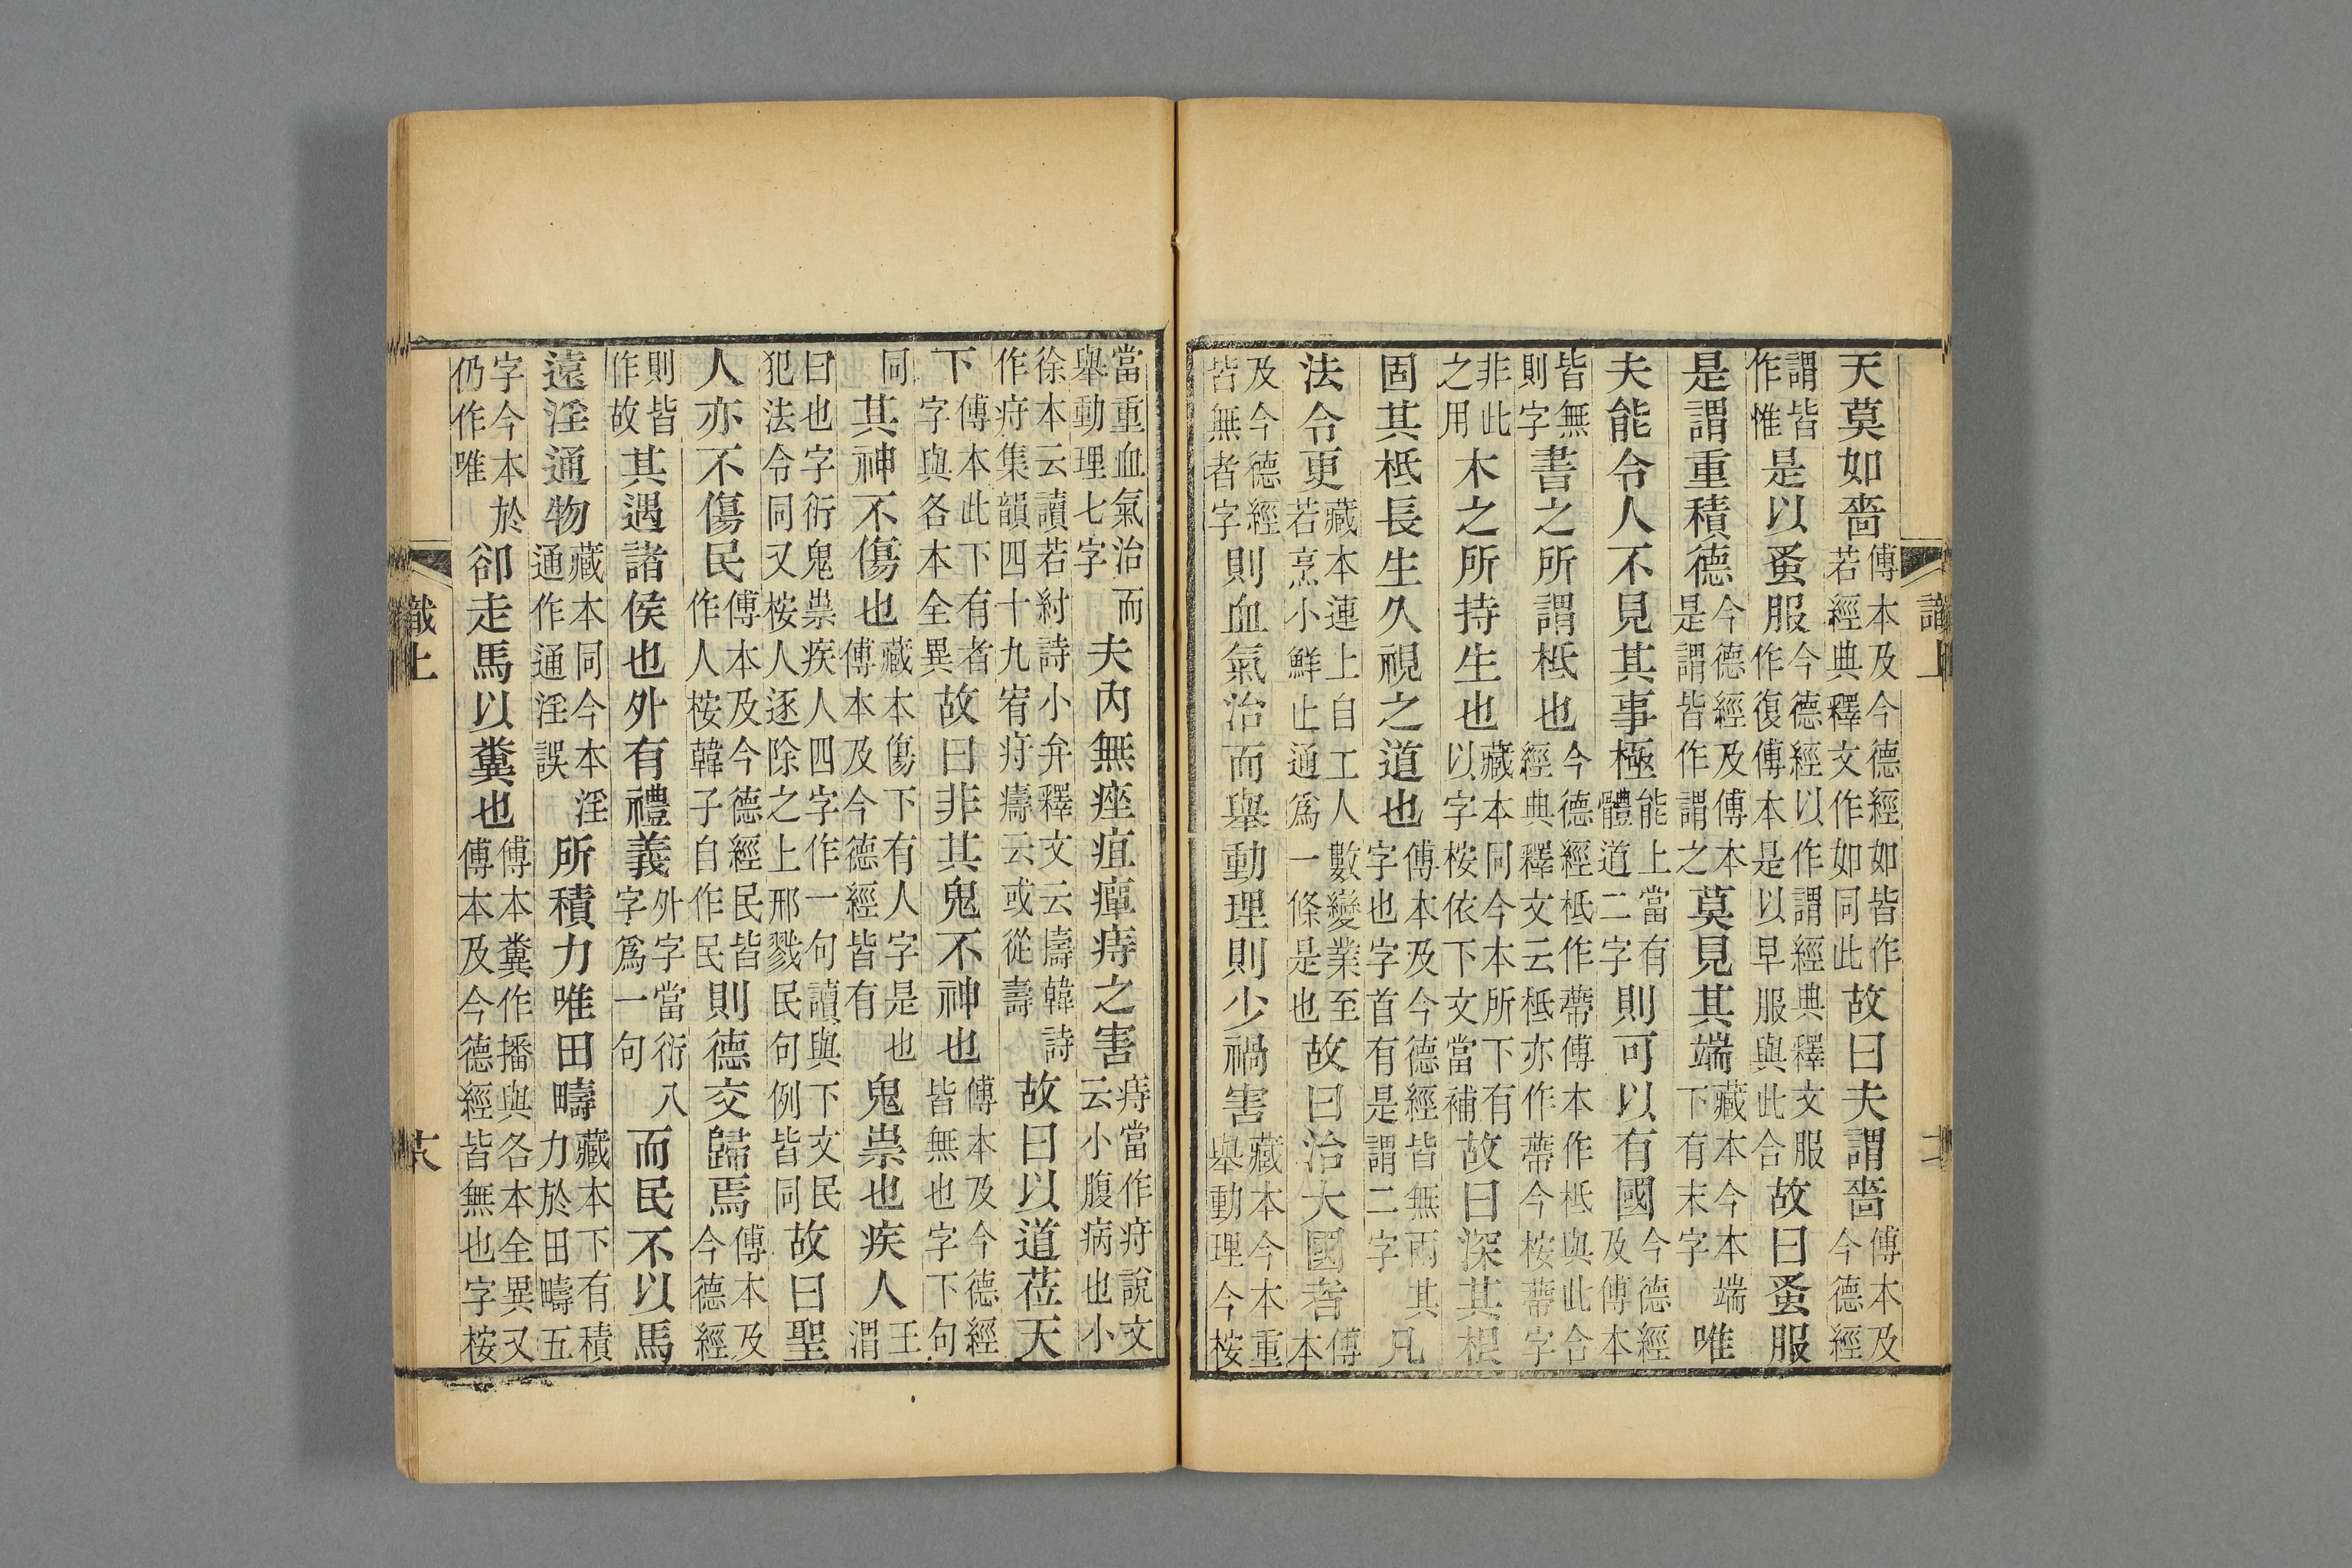 天莫如嗇傅本及今德經如皆作若經典釋文作如同此故曰夫謂嗇傅本及今德經
謂皆作惟是以蚤服今德經以作謂經典釋文服作復傅本是以早服與此合故曰蚤服
是謂重積德今德經及傅本是謂皆作謂之莫見其端藏本今本端下有末字唯
夫能令人不見其事極能上當有體道二字則可以有國今德經及傅本
皆無則字書之所謂柢也今德經柢作蔕傅本作柢與此合經典釋文云柢亦作蔕今桉蔕字
非此之用木之所持生也藏本同今本所下有以字桉依下文當補故曰深其根
固其柢長生久視之道也傅本及今德經皆無兩其字也字首有是謂二字凡
法令更藏本連上自工人數變業至若烹小鮮止通爲一條是也故曰治大國者傅本
及今德經皆無者字則血氣治而舉動理則少禍害藏本今本重舉動理今桉
當重血氣治而舉動理七字夫內無痤疽癉痔之害痔當作疛說文云小腹病也小
徐本云讀若紂詩小弁釋文云擣韓詩作疛集韻四十九宥疛㿒云或從壽故曰以道莅天
下傅本此下有者字與各本全異故曰非其鬼不神也傅本及今德經皆無也字下句
同其神不傷也藏本傷下有人字是也傅本及今德經皆有鬼祟也疾人王渭
曰也字衍鬼祟疾人四字作一句讀與下文民犯法令同又桉人逐除之上邢戮民句例皆同故曰聖
人亦不傷民傅本及今德經民皆作人桉韓子自作民則德交歸焉傅本及今德經
則皆作故其遇諸侯也外有禮義外字當衍八字爲一句而民不以馬
遠淫通物藏本同今本淫通作通淫誤所積力唯田疇藏本下有積力於田疇五
字今本於仍作唯卻走馬以糞也傅本糞作播與各本全異又傅本及今德經皆無也字桉
識上